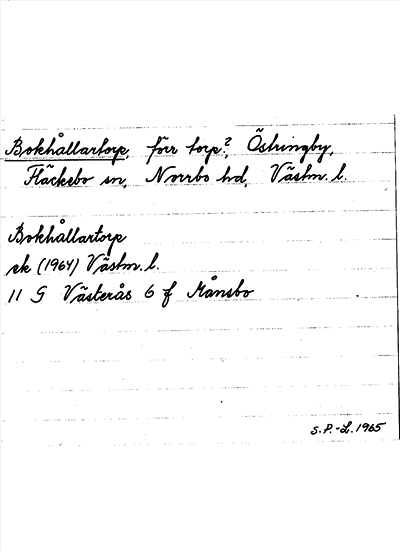 Bokhållartorp, förr torp?, Östringby,
Fläckebo sn, Norrbo hd, Västm. l.
Bokhållartorp
ek (1964) Västm. l.
11 G Västerås 6 f Månsbo
S.P.-L. 1965